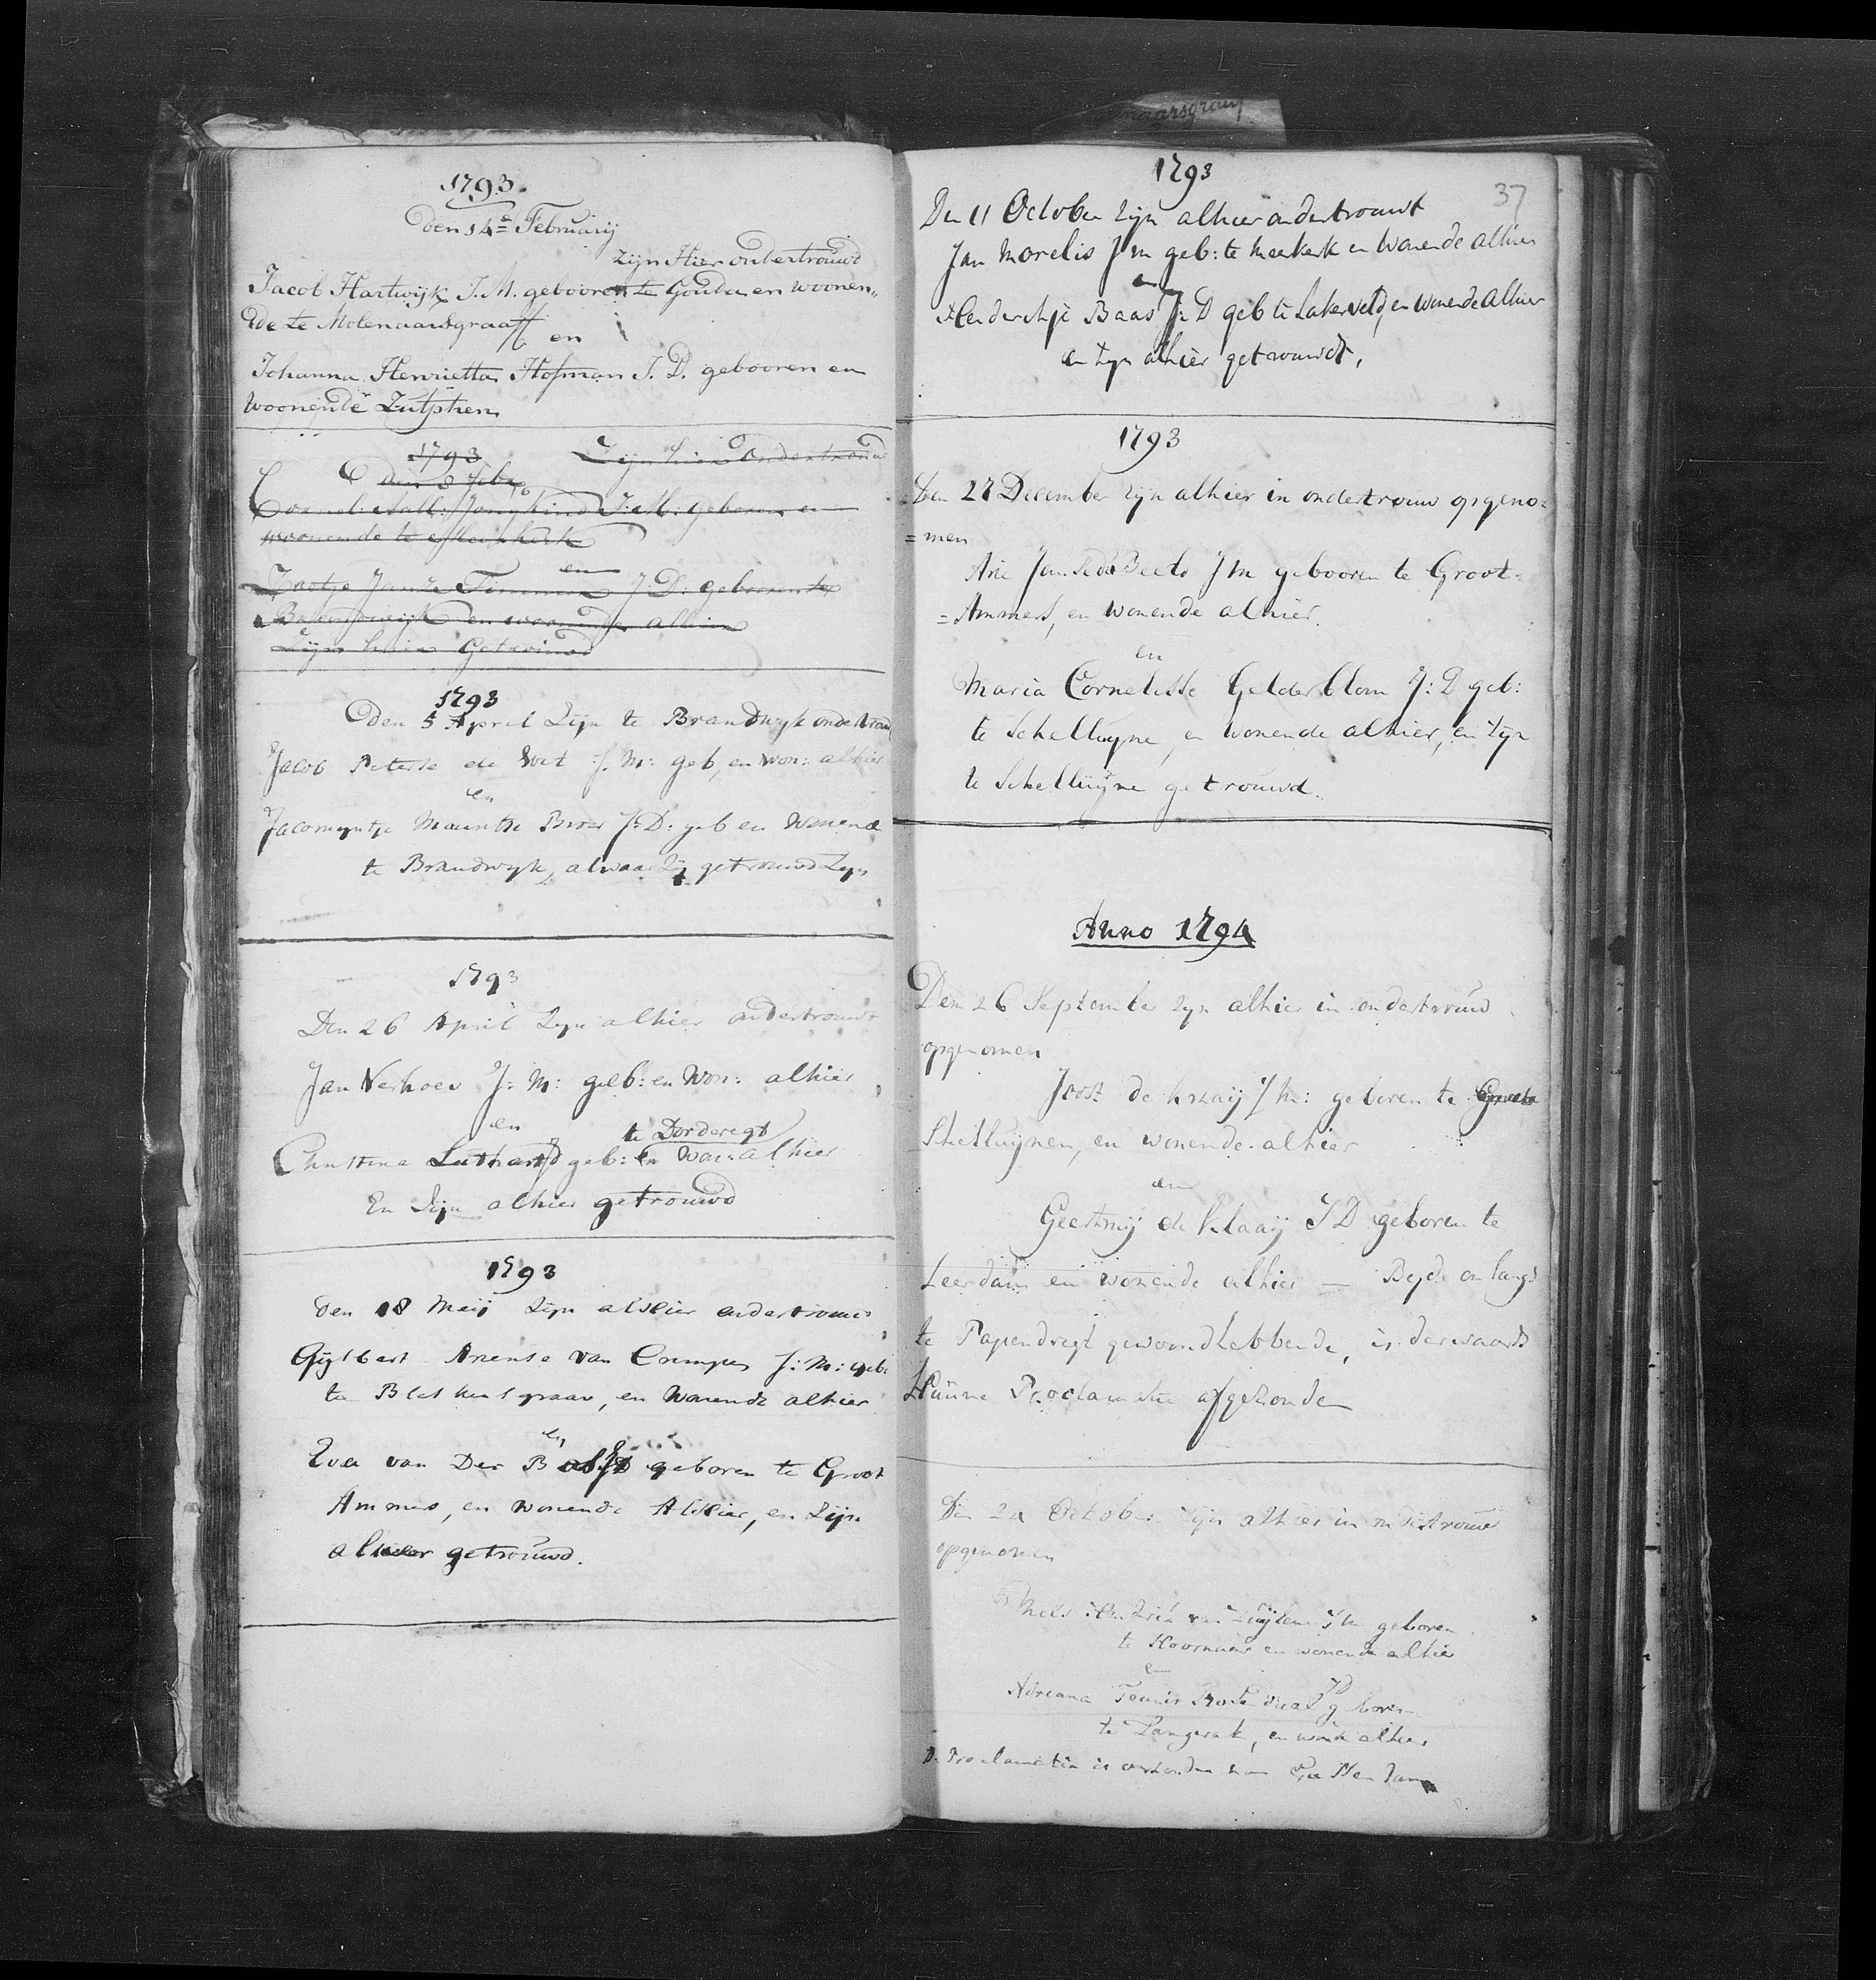 1793.
Den 14e Februarij
zijn Hier ondertrouwd
Jacob Hartwijk J.M. gebooren te Gouda en woonen„
de te Molenaarsgraaff
en
Johanna Henrietta Hofman J.D. gebooren en
woonende Zutphen
1793 Zijn hier Ondertrouwd
den 8 Feb
Cornel: Aall: Jongkind J:M: geboren en
woonende te
en
Janse Timmer J:D: geboren te
Brandwijk en woonende alhier
Zijn hier Getrouwd
1793
Den 5 April Zijn te Brandwyk ondertrouwd
Jacob Peterse de Wit J.M: geb, en won: alhier
en
Jacomyntje J:D: geb en Wonende
te Brandwyk, alwaar Zy getrouwd Zyn
1793
Den 26 April Zyn alhier ondertrouwt
Jan Verhoev J:M: geb: en Won: alhier
en te Dorderegt
Christina JD geb: En Won: alhier
En Zijn alhier getrouwd
1793
Den 18 Meij Zijn alhier ondertrouwd
Gijsbert Ariense van Crimpen J:M: geb:
te Bleskensgraav, en Wonende alhier
en
Eva van Der JD geboren te Groot
Ammers, en wonende Alhier, en Zijn
alhier getrouwd.
maarsgraaf
1793
37
Den 11 October Zijn alhier ondertrouwt
Jan Morelis J m geb: te Meerkerk en Wonende alhier
en
Hendershje Baas J: D geb te Lakerveld, en wonende Alhier
en Zyn alhier getrouwdt,
1793
Den 27 December zijn alhier in ondertrouw opgeno=
=men
Arie Janse de Beets J M gebooren te Groot=
=Ammers, en wonende alhier.
en
Maria Cornelisse Gelderblom J: D geb:
te Schelluyne, en wonende alhier, en Zyn
te Schelluyne getrouwd.
Anno 1794
Den 26 September zyn alhier in ondertrouw
opgenomen
Joost de J M: geboren te
Shelluijnen, en wonende alhier
en
Geertruij de Klaaij J D geboren te
Leerdam en wonende alhier — Beyde onlangs
te Papendregt gewoond hebbende, is derwaards
Hunne Proclamatie afgezonden
Den 24 October Zijn alhier in ondertrouw
opgenomen
Hendrik van J M geboren
te Hoornaar en wonende alhier
en JD
Adriana Teunis geboren
te Langerak, en alhier
De Proclamatie is van